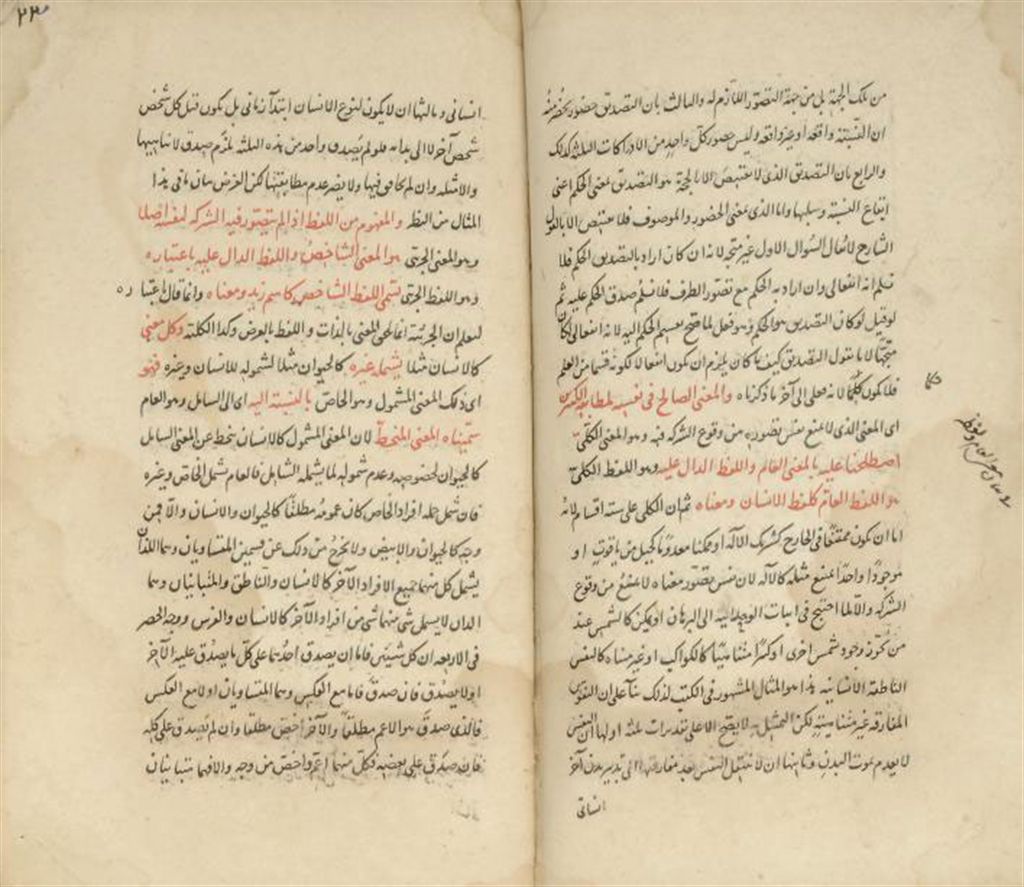 من تلك الجهة بل من جهة التصور اللازم له والثالث بان التصديق حضور
ان النسبة واقعة او غير واقعة وليس حضور كل واحد من الادراكات الثلثة كذلك
والرابع بان التصديق الذى لا يقتضى الا بالحجة هو التصديق بمعنى الحكم اعنى
ايقاع النسبة وسلبها واما الذى بمعنى الحضور والموصوف فلا يقتضى الا بالقول
الشارح لا يقال السؤال الاول غير متجه لانه ان كان اراد بالتصديق الحكم فلا
نسلم انه انفعالى وان اراد به الحكم مع تصور الطرف فلا نسلم صدق الحكم عليه ثم
لو قيل لو كان التصديق هو الحكم وهو فعل لما صح تقسيم الحكم اليه لانه انفعالى لكان
متجها لانا نقول التصديق كيف ما كان يلزم ان يكون انفعالا لكونه قسما من العلم
فلا يكون حكما لانه فعلى الى آخر ما ذكرناه والمعنى الصالح فى نفسه لمطابقة الكثيرين
اى المعنى الذى لا يمنع نفس تصوره من وقوع الشركة فيه وهو المعنى الكلى
اصطلحنا عليه بالمعنى العام واللفظ الدال عليه وهو اللفظ الكلى
هو اللفظ العام كلفظ الانسان ومعناه ثم ان الكلى على ستة اقسام لانه
اما ان يكون ممتنعا فى الخارج كشريك الاله او ممكنا معدوما كجبل من ياقوت او
موجودا واحدا يمتنع مثله كالاله لان نفس تصور معناه لا يمنع من وقوع
الشركة والا لما احتيج فى اثبات الوحدانية الى البرهان او يمكن كالشمس عند
من يجوز وجود شمس اخرى او كثيرا متناهيا كالكواكب او غير متناه كالنفس
الناطقة الانسانية هذا هو المثال المشهور فى الكتب لذلك بناء على ان النفوس
المفارقة غير متناهية لكن التمثيل به لا يصح الا على تقديرات ثلثة اولها ان النفس
لا يعدم بموت البدن وثانيها ان لا تنتقل النفس بعد مفارقتها الى تدبير بدن آخر
انسانى
انسانى وثالثها ان لا يكون لنوع الانسان ابتداء زمانى بل يكون قبل كل شخص
شخص آخر لا الى بداية فلو لم يصدق واحد من هذه الثلثة يلزم صدق لا تناهيها
والامثلة وان لم فيها ولا يضر عدم مطابقتها لكن الغرض بيان ما فى هذا
المثال من النظر والمفهوم من اللفظ اذا لم يتصور فيه الشركة لنفسه اصلا
وهو المعنى الجزئى هو المعنى الشاخص واللفظ الدال عليه باعتباره
وهو اللفظ الجزئى يسمى اللفظ الشاخص كاسم زيد ومعناه وانما قال باعتباره
ليعلم ان الجزئية انما تلحق المعنى بالذات واللفظ بالعرض وكذا الكلية وكل معنى
كالانسان مثلا يشمله غيره كالحيوان مثلا لشموله للانسان وغيره فهو
اى ذلك المعنى المشمول وهو الخاص بالنسبة اليه اى الى الشامل وهو العام
سميناه المعنى المنحط لان المعنى المشمول كالانسان منحط عن المعنى الشامل
كالحيوان لخصوصه وعدم شموله لما يشمله الشامل فالعام يشمل الخاص وغيره
فان شمل جملة افراد الخاص كان عمومه مطلقا كالحيوان والانسان والا فمن
وجه كالحيوان والابيض ولا يخرج من ذلك عن قسمين المتساويان وهما اللذان
يشمل كل منهما جميع الافراد الآخر كالانسان والناطق والمتباينان وهما
اللذان لا يشمل شئ منهما شئ من افراد الآخر كالانسان والفرس ووجه الحصر
فى الاربعة ان كل شيئين فاما ان يصدق احدهما على كل ما يصدق عليه الآخر
او لا يصدق فان صدق فاما مع العكس وهما المتساويان او لا مع العكس
فالذى صدق هو الاعم مطلقا والآخر اخص مطلقا وان لم يصدق على كله
فان صدق على بعضه فكل منهما اعم واخص من وجه والا فهما متباينان